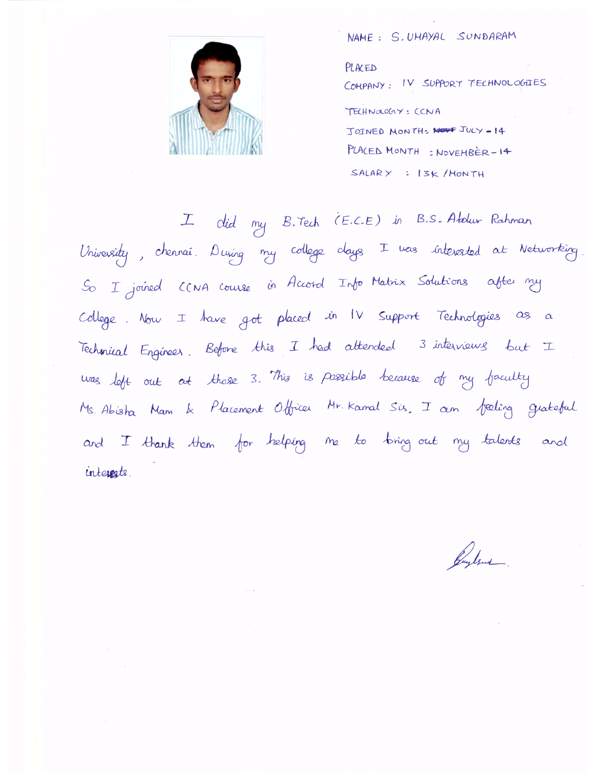 NAME : S. UMAYAL SUNDARAM
PLACED
COMPANY : IV SUPPORT TECHNOLOGIES
TECHNOLOGY : CCNA
JOINED MONTH : JULY - 14
PLACED MONTH : NOVEMBER - 14
SALARY : 13K /MONTH
I did my B.Tech (E.C.E) in B.S. Abdur Rahman
University, chennai. During my college days I was interested at Networking.
So I joined CCNA course in Accord Info Matrix Solutions after my
College. Now I have got placed in IV Support Technologies as a
Technical Engineer. Before this I had attended 3 interviews but I
was left out at those 3. This is possible because of my faculty
Ms. Abisha Mam & Placement Officer Mr. Kamal Sir. I am feeling grateful
and I thank them for helping me to bring out my talents and
interests.